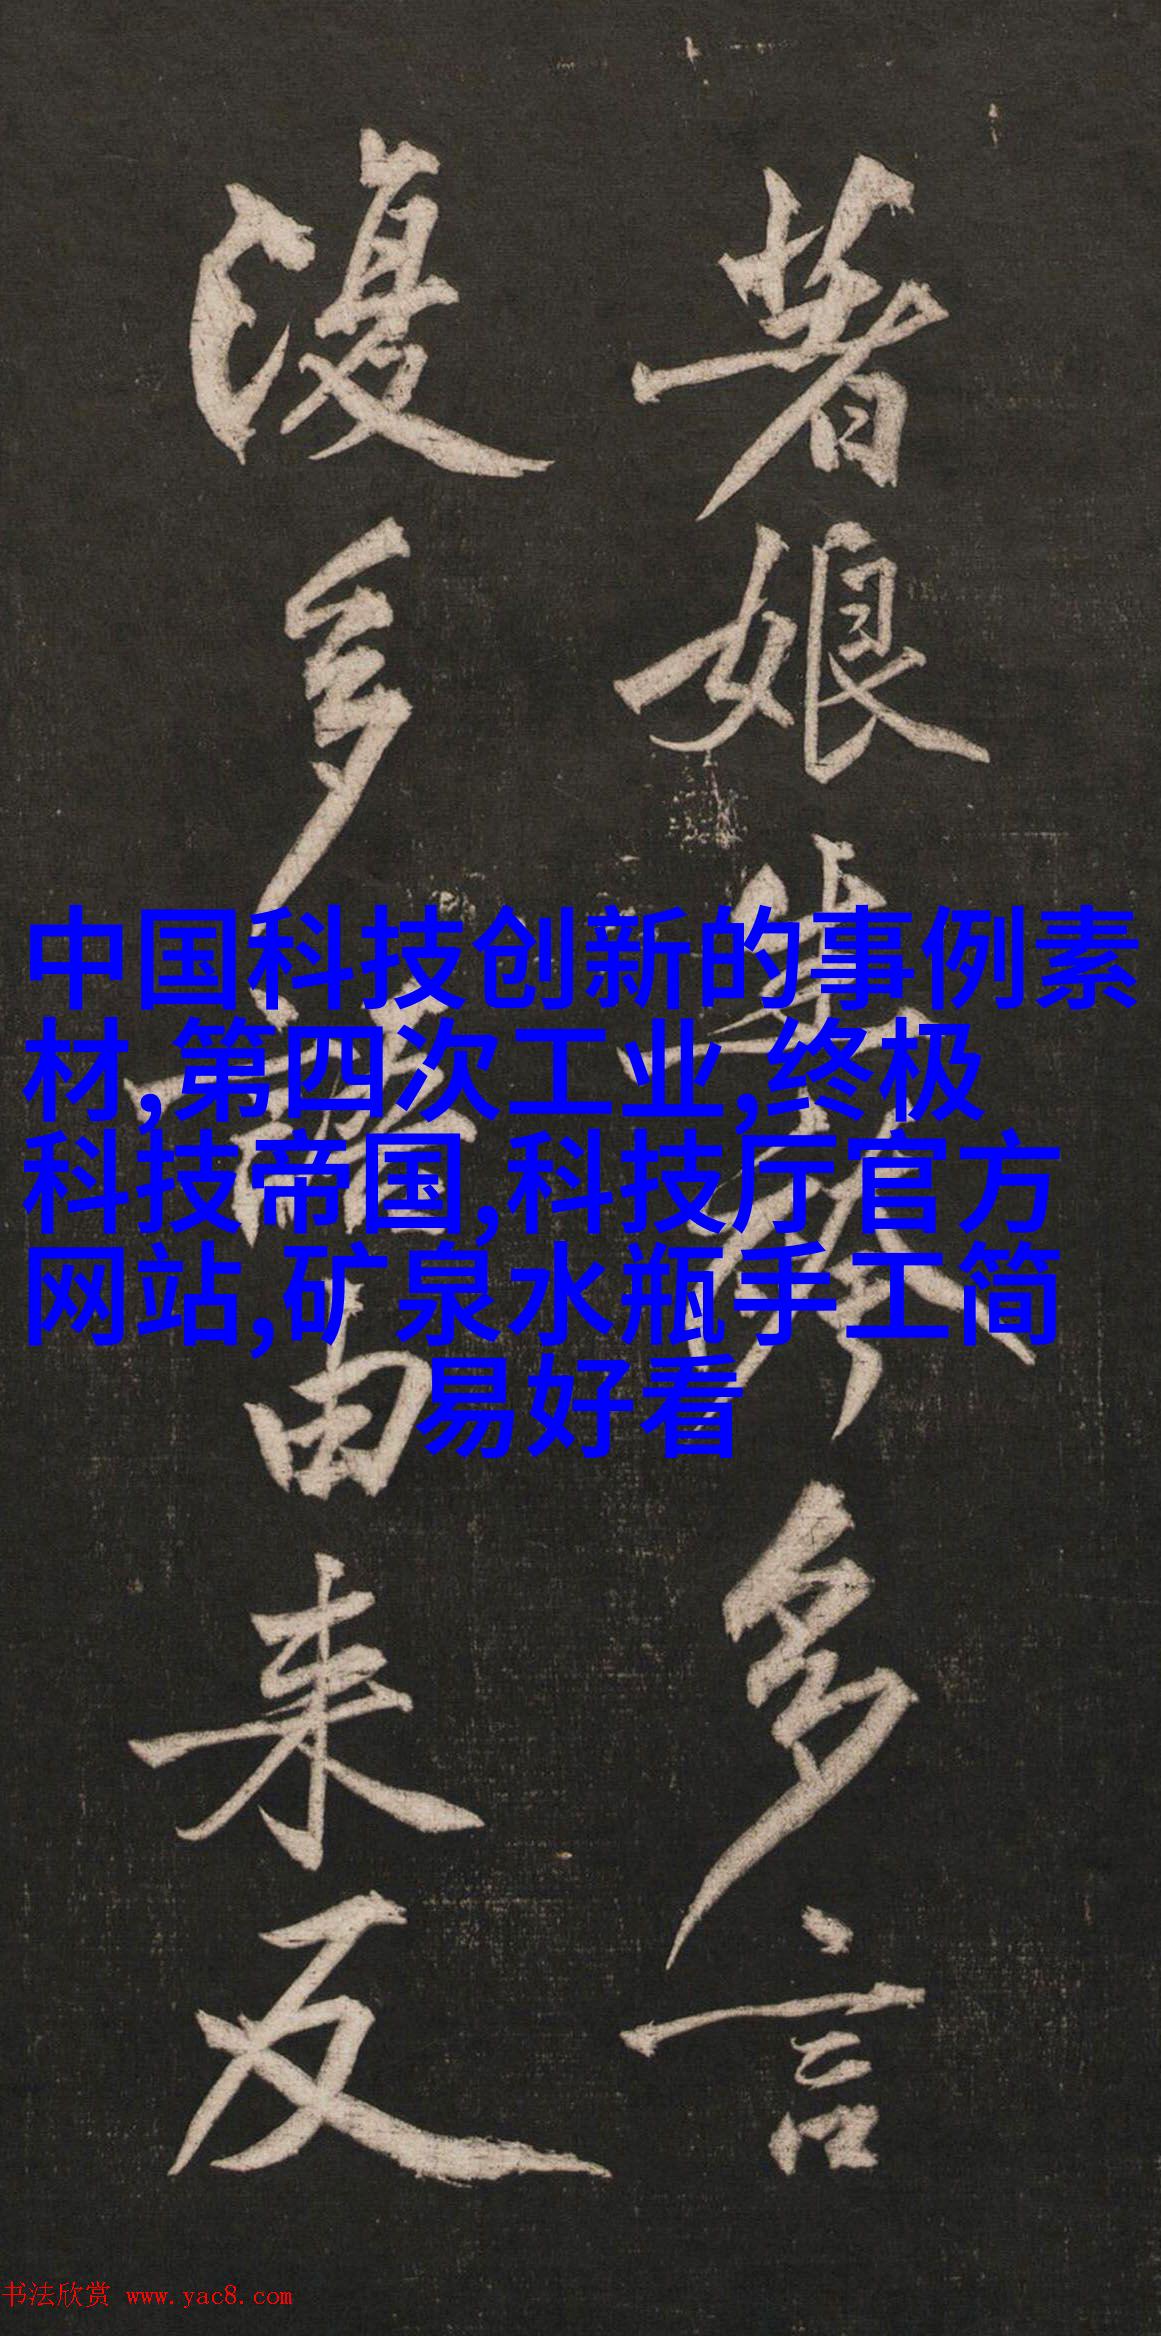 著娘多言
多由来反
中国科技创新的事例素
材,第四次工业,终极
科技帝国,科技厅官方
网站,矿泉水瓶手工简
易好看
书法欣赏 www.yac8.com